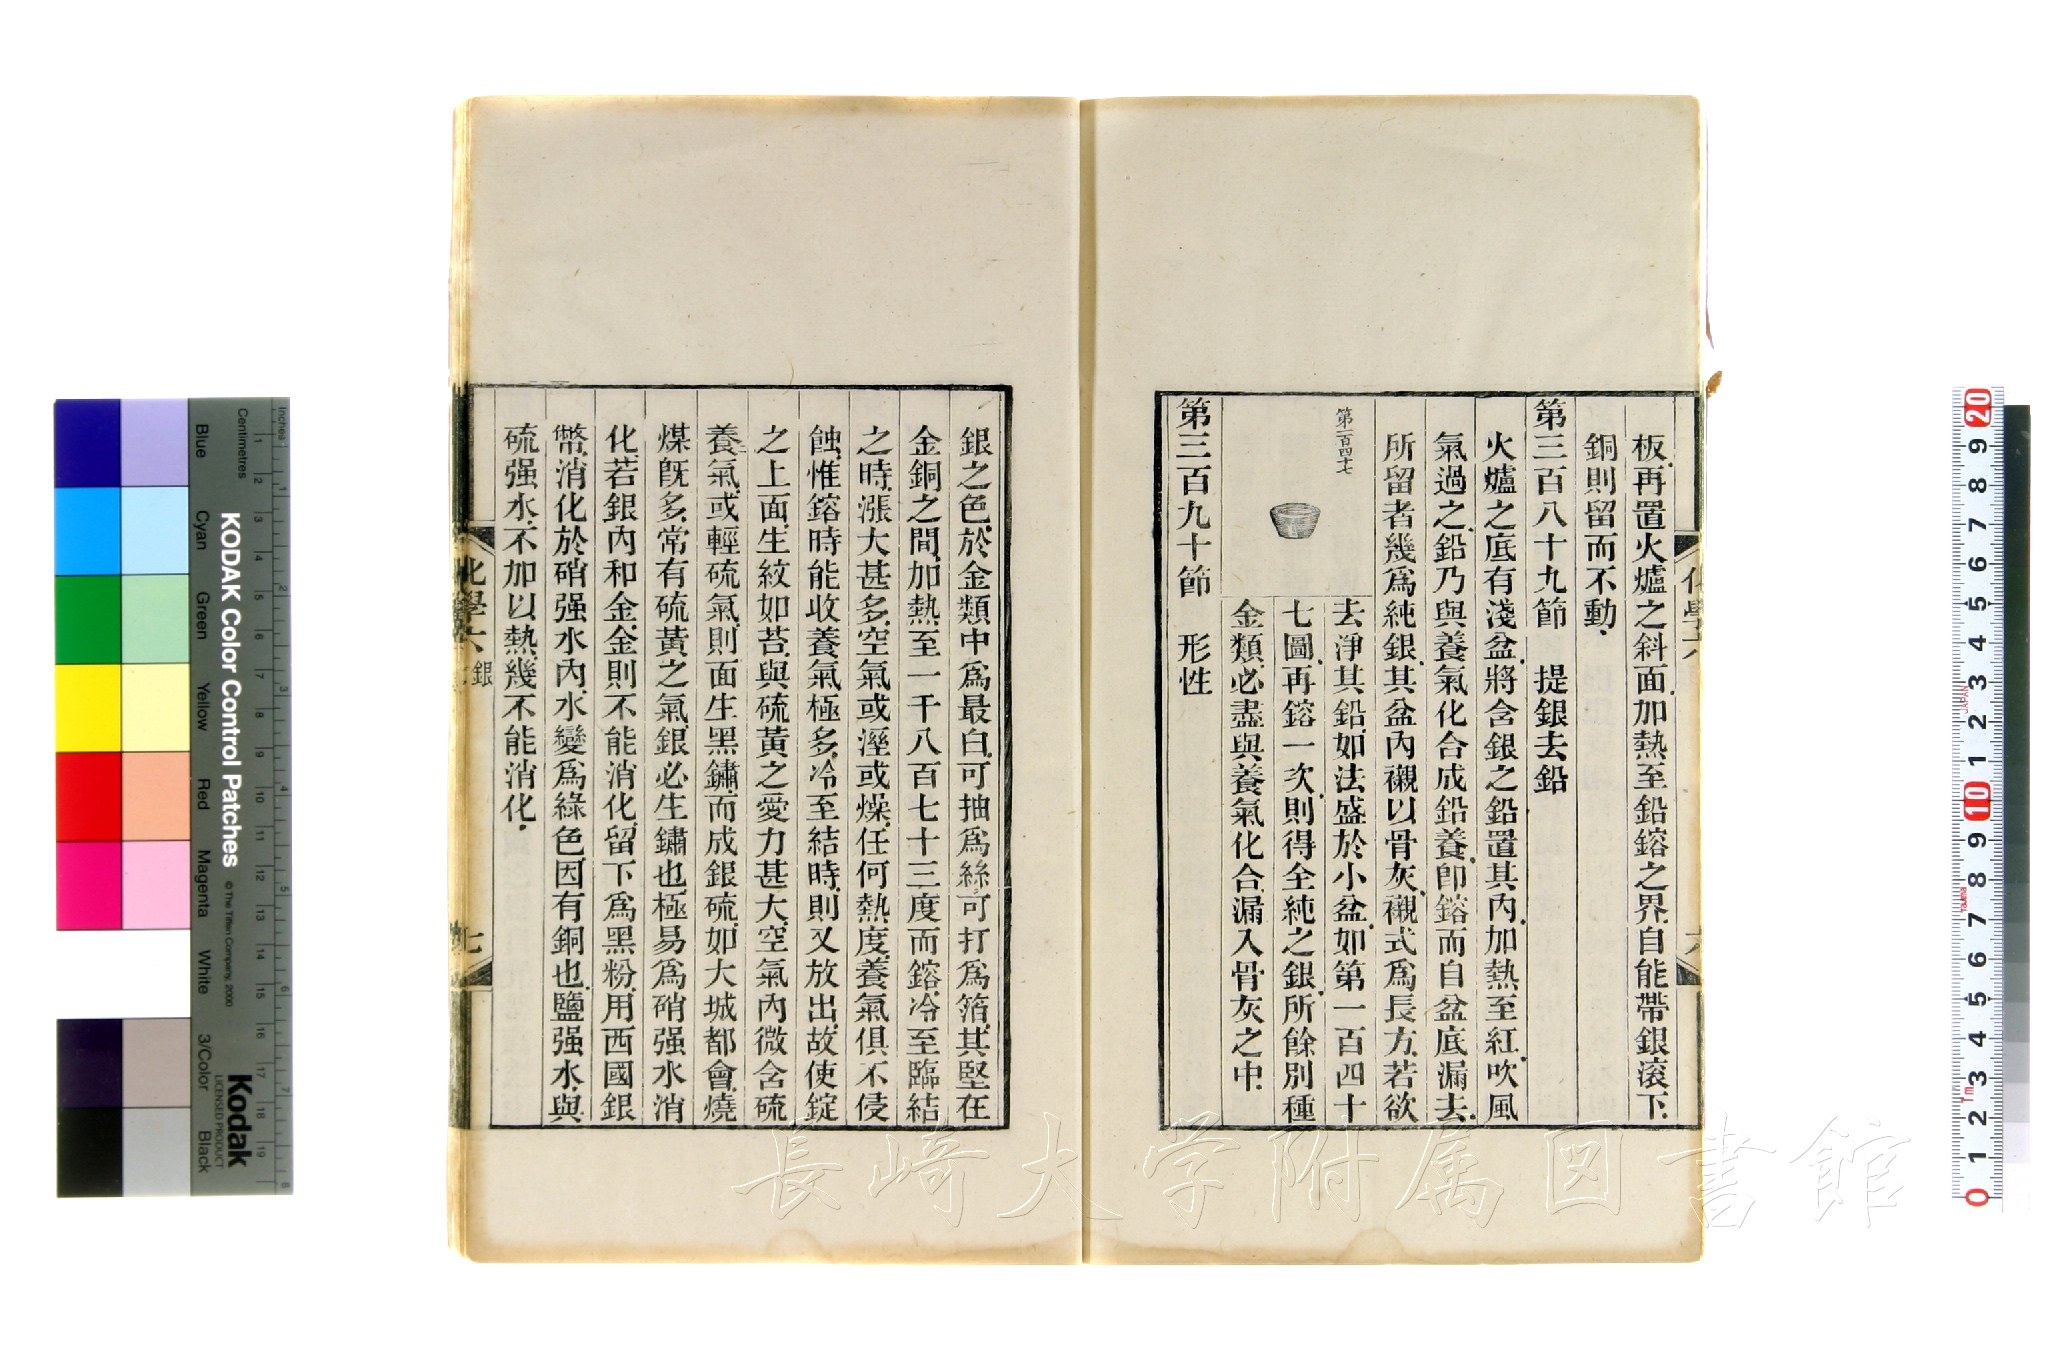 板再置火爐之斜面加熱至鉛鎔之界自能帶銀滚下
銅則留而不動
第三百八十九節　提銀去鉛
火爐之底有淺盆將含銀之鉛置其內加熱至紅吹風
氣過之鉛乃與養氣化合成鉛養卽鎔而自盆底漏去
所留者幾爲純銀其盆內襯以骨灰襯式爲長方若欲
第一百四十七
去淨其鉛如法盛於小盆如第一百四十
七圖再鎔一次則得全純之銀所餘別種
金類必盡與養氣化合漏入骨灰之中
第三百九十節　形性
化學六
六
銀之色於金類中爲最白可抽爲絲可打爲箔其堅在
金銅之間加熱至一千八百七十三度而鎔冷至臨結
之時漲大甚多空氣或溼或燥任何熱度養氣俱不侵
蝕惟鎔時能收養氣極多冷至結時則又放出故使錠
之上面生紋如苔與硫黃之愛力甚大空氣內微含硫
養氣或輕硫氣則面生黑鏽而成銀硫如大城都會燒
煤旣多常有硫黃之氣銀必生鏽也極易爲硝强水消
化若銀內和金金則不能消化留下爲黑粉用西國銀
幣消化於硝强水內水變爲綠色因有銅也鹽强水與
硫强水不加以熱幾不能消化
化學六
銀
七
長崎大学附属図書館
KODAK Color Control Patches
© The Tiffen Company, 2000
Kodak
LICENSED PRODUCT
Inches
Centimetres
Blue
Cyan
Green
Yellow
Red
Magenta
White
3/Color
Black
1 2 3 4 5 6 7 8
1 2 3 4 5 6 7 8 9 10 11 12 13 14 15 16 17 18 19
20 9 8 7 6 5 4 3 2 1 10 9 8 7 6 5 4 3 2 1 0
JAPAN
Tajima
Tm